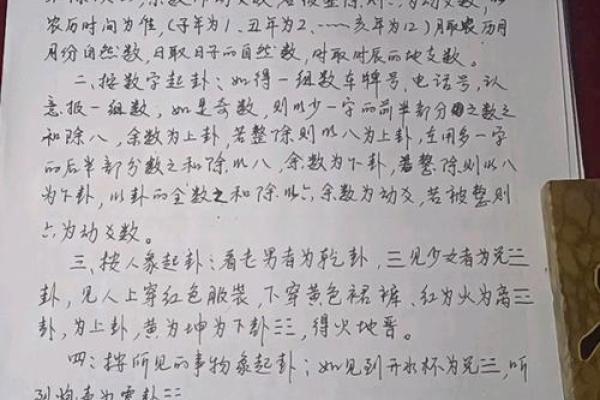 农历时间为准,(子年为1、丑年为2、……亥年为12)月取农历月
月份自然数,日取日子的自然数,时取时辰的地支数。
二、按数字起卦:如得一组数车牌号、电话号,认
意报一组数,如是奇数,则以少一字的前半部分之数之
和除八,余数为上卦,若整除则以八为上卦,在用多一字
的后半部分数之和除以八,余数为下卦,若整除则以八
为下卦,以卦的全数之和除以六,余数为动爻,若被整则
六为动爻数。
三、按人象起卦:看老男者为乾卦,三见少女者为兑三
卦,见人上穿红色服装,下穿黄色裙裤、红为火为离三
卦,为上卦,黄为坤为下卦三三,得火地晋。
四:按所见的事物象起卦;如见到开水杯为兑三,听
到炮声为震卦三三